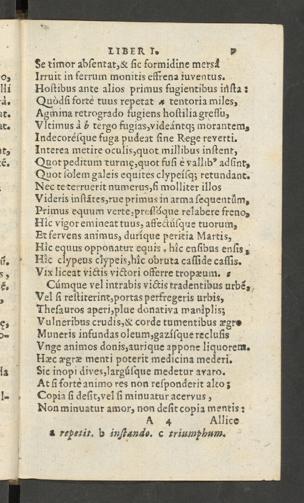 LIBER I. 9
Se timor absentat, & sic formidine mersâ
Irruit in ferrum monitis effrena iuventus.
Hostibus ante alios primus fugientibus insta:
Quòdsi fortè tuus repetat a tentoria miles,
Agmina retrogrado fugiens hostilia gressu,
Vltimus à b tergo fugias, videántq; morantem,
Indecorésque fuga pudeat sine Rege reverti.
Interea metire oculis, quot millibus instent,
Quot peditum turmę, quot fusi è vallibꝰ adsint,
Quot solem galeis equites clypeísq; retundant.
Nec te terruerit numerus, si molliter illos
Videris instãtes, rue primus in arma sequentûm,
Primus equum verte, pressóque relabere freno,
Hîc vigor emineat tuus, affectúsque tuorum,
Et fervens animus, dursque peritia Martis,
Hîc equus opponatur equis, hîc ensibus ensis,
Hîc clypeus clypeis, hîc obruta casside cassis.
Vix liceat victis victori offerre tropæum. c
Cúmque vel intrabis victis tradentibus urbẽ,
Vel si restiterint, portas perfregeris urbis,
Thesauros aperi, plue donativa maniplis;
Vulneribus crudis, & corde tumentibus ægro
Muneris infundas oleum, gazísque reclusis
Vnge animos donis, aurique appone liquorem.
Hæc ægræ menti poterit medicina mederi.
Sic inopi dives, largúsque medetur avaro.
At si fortè animo res non responderit alto;
Copia si desit, vel si minuatur acervus,
Non minuatur amor, non desit copia mentis:
A 4 Allice
a repetit. b instando. c triumphum.